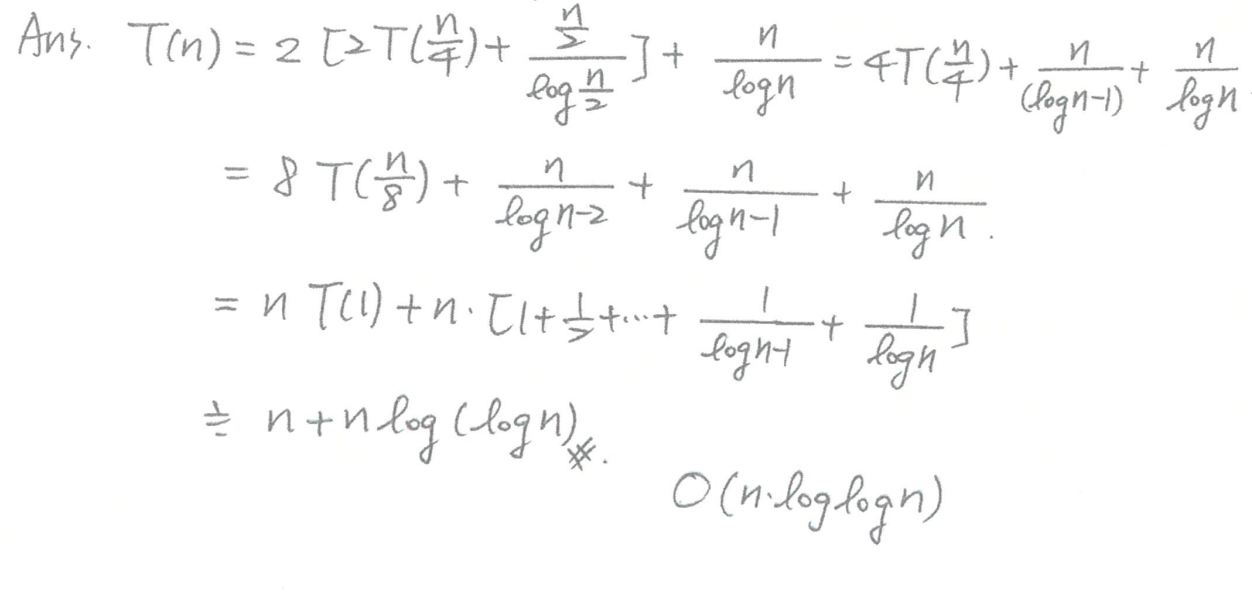 Ans. T(n) = 2 [2T(n/4) + (n/2)/(log n/2)] + n/(log n) = 4T(n/4) + n/(log n-1) + n/(log n)
= 8 T(n/8) + n/(log n-2) + n/(log n-1) + n/(log n).
= n T(1) + n · [1 + 1/2 + ... + 1/(log n-1) + 1/(log n)]
≑ n + n log (log n) #.
O(n·log log n)